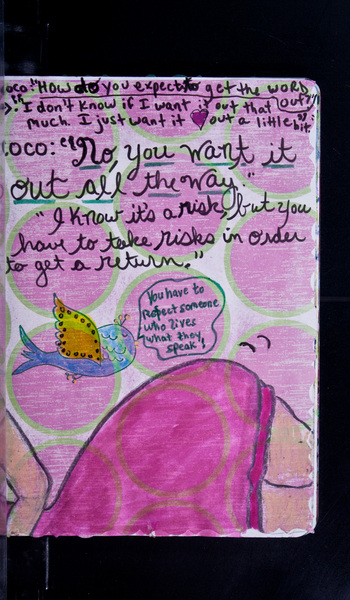 OCO: "How do you expect to get the WORD out?"
: "I don't know if I want it out that
much. I just want it out a little bit."
OCO: "No, you want it
out all the way."
"I know it's a risk, but you
have to take risks in order
to get a return."
You have to
Respect someone
who lives
what they
speak!